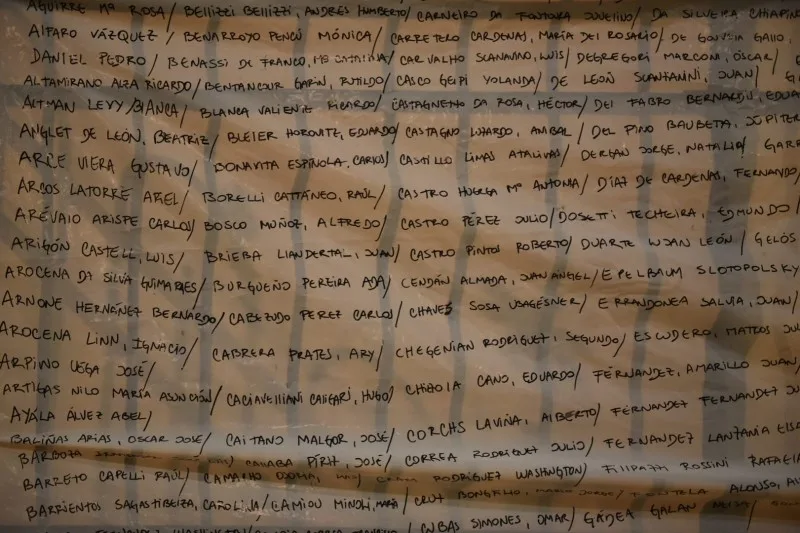 AGUIRRE Mª ROSA/ BELLIZZI BELLIZZI, ANDRÉS HUMBERTO/ CARNEIRO DA FONTOURA JUVELINO/ DA SILVEIRA CHIAPPIN
ALFARO VÁZQUEZ/ BENARROYO PENCÚ MÓNICA/ CARRETERO CARDENAS, MARÍA DEL ROSARIO/ DE GOUVEIA GALLO,
DANIEL PEDRO/ BENASSI DE FRANCO, Mª CATALINA/ CARVALHO SCANAVINO, LUIS/ DEGREGORI MARCONI, OSCAR/
ALTAMIRANO ALZA RICARDO/ BENTANCOUR GARIN, RUTILDO/ CASCO GELPI YOLANDA/ DE LEÓN SCANTANINI, JUAN/
ALTMAN LEVY/BIANCA/ BLANCA VALIENTE RICARDO/ CASTAGNETTO DA ROSA, HÉCTOR/ DEL FABRO BERNARDIS, EDUA
ANGLET DE LEÓN, BEATRIZ/ BLEIER HOROVITZ, EDUARDO/ CASTAGNO LUZARDO, ANIBAL/ DEL PINO BAUBETA, JÚPITER
ARCE VIERA GUSTAVO/ BONAVITA ESPÍNOLA, CARLOS/ CASTILLO LIMAS ATALIVAS/ DERGAN JORGE, NATALIO/ GARR
ARCOS LATORRE ARIEL/ BORELLI CATTÁNEO, RAÚL/ CASTRO HUERGA Mª ANTONIA/ DÍAZ DE CARDENAS, FERNANDO/
ARÉVALO ARISPE CARLOS/ BOSCO MUÑOZ, ALFREDO/ CASTRO PÉREZ JULIO/ DOSSETTI TECHEIRA, EDMUNDO/
ARIGÓN CASTELL, LUIS/ BRIEBA LLANDERTAL, JUAN/ CASTRO PINTOS ROBERTO/ DUARTE LUJAN LEÓN/ GELÓS
AROCENA DA SILVA GUIMARAES/ BURGUEÑO PEREIRA ADA/ CENDÁN ALMADA, JUAN ANGEL/ EPELBAUM SLOTOPOLSKY
ARNONE HERNÁNEZ BERNARDO/ CABEZUDO PEREZ CARLOS/ CHAVES SOSA UBAGESNER/ ERRANDONEA SALVIA, JUAN/
AROCENA LINN, IGNACIO/ CABRERA PRATES, ARY/ CHEGENIAN RODRIGUEZ, SEGUNDO/ ESCUDERO, MATTOS JU
ARPINO VEGA JOSÉ/
ARTIGAS NILO MARÍA ASUNCIÓN/ CACIAVELLIANI CALIGARI, HUGO/ CHIZZOLA CANO, EDUARDO/ FERNANDEZ, AMARILLO JUAN
AYALA ÁLVEZ ABEL/
BALIÑAS ARIAS, OSCAR JOSÉ/ CAITANO MALGOR, JOSÉ/ CORCHS LAVIÑA, ALBERTO/ FERNANDEZ FERNANDEZ JU
BARBOZA CANABA PIRIZ, JOSÉ/ CORREA RODRIGUEZ JULIO/ FERNANDEZ LANZANIA ELSA
BARRETO CAPELLI RAÚL/ CAMACHO RODRIGUEZ WASHINGTON/ FILIPAZZI ROSSINI RAFAELA
BARRIENTOS SAGASTIBELZA, CAROLINA/ CAMIOU MINOLI, MARÍA/ CRUZ ALONSO,
CUBAS SIMONES, OMAR/ GÁDEA GALAN